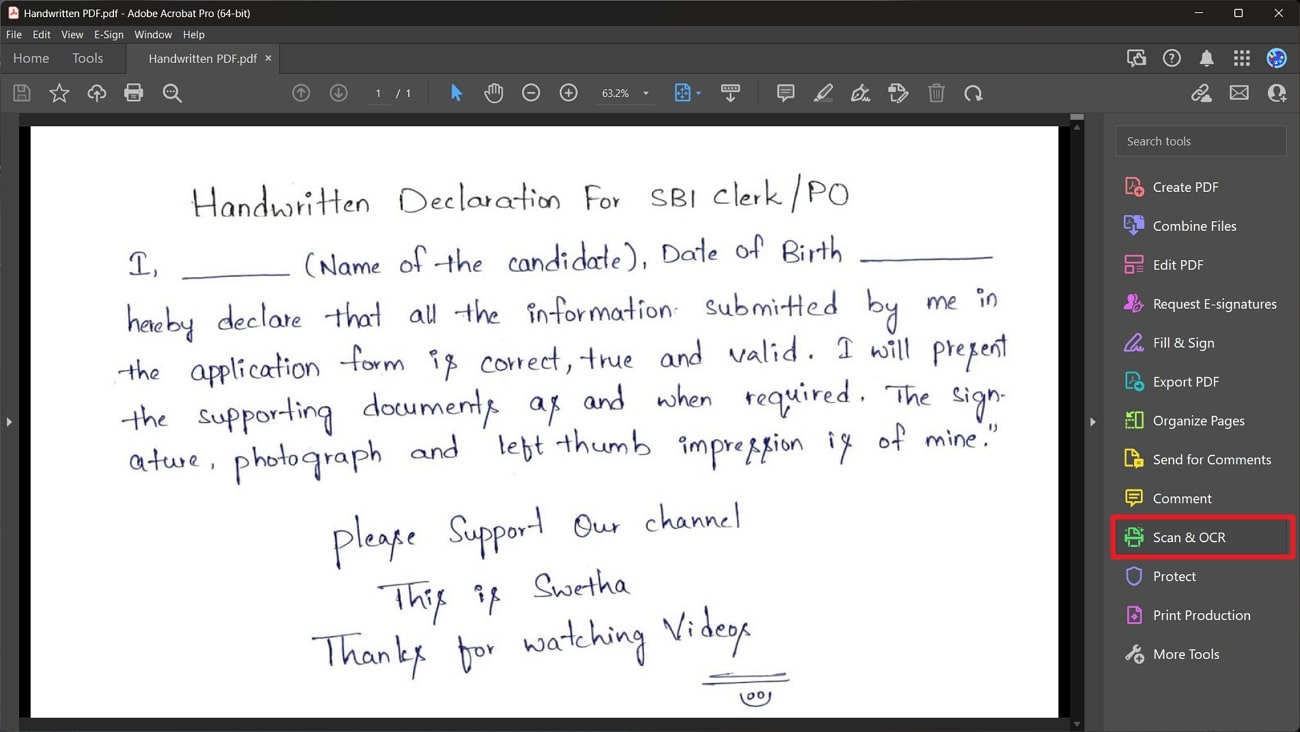 Handwritten PDF.pdf - Adobe Acrobat Pro (64-bit)
File Edit View E-Sign Window Help
Home Tools Handwritten PDF.pdf ×
1 / 1 63.2%
Handwritten Declaration For SBI Clerk/PO
I, ________ (Name of the candidate), Date of Birth __________
hereby declare that all the information submitted by me in
the application form is correct, true and valid. I will present
the supporting documents as and when required. The sign-
ature, photograph and left thumb impression is of mine."
please Support Our channel
This is Swetha
Thanks for watching Videos
Search tools
Create PDF
Combine Files
Edit PDF
Request E-signatures
Fill & Sign
Export PDF
Organize Pages
Send for Comments
Comment
Scan & OCR
Protect
Print Production
More Tools